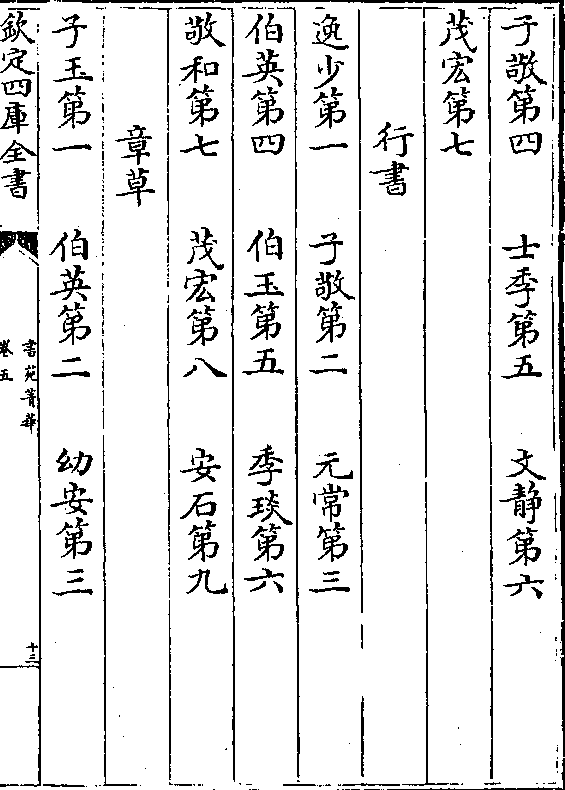 子敬第四　士季第五　文静第六
茂宏第七
行書
逸少第一　子敬第二　元常第三
伯英第四　伯玉第五　季琰第六
敬和第七　茂宏第八　安石第九
章草
子玉第一　伯英第二　幼安第三
欽定四庫全書
書苑菁華
卷五
十三